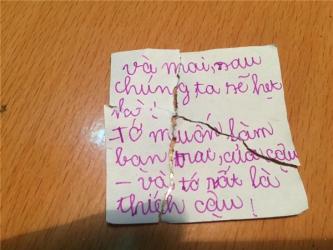 và mai, sau
chúng ta sẽ hạt
là:
tớ muốn làm
bạn trai, của cậu
- và tớ rất là
thích cậu!